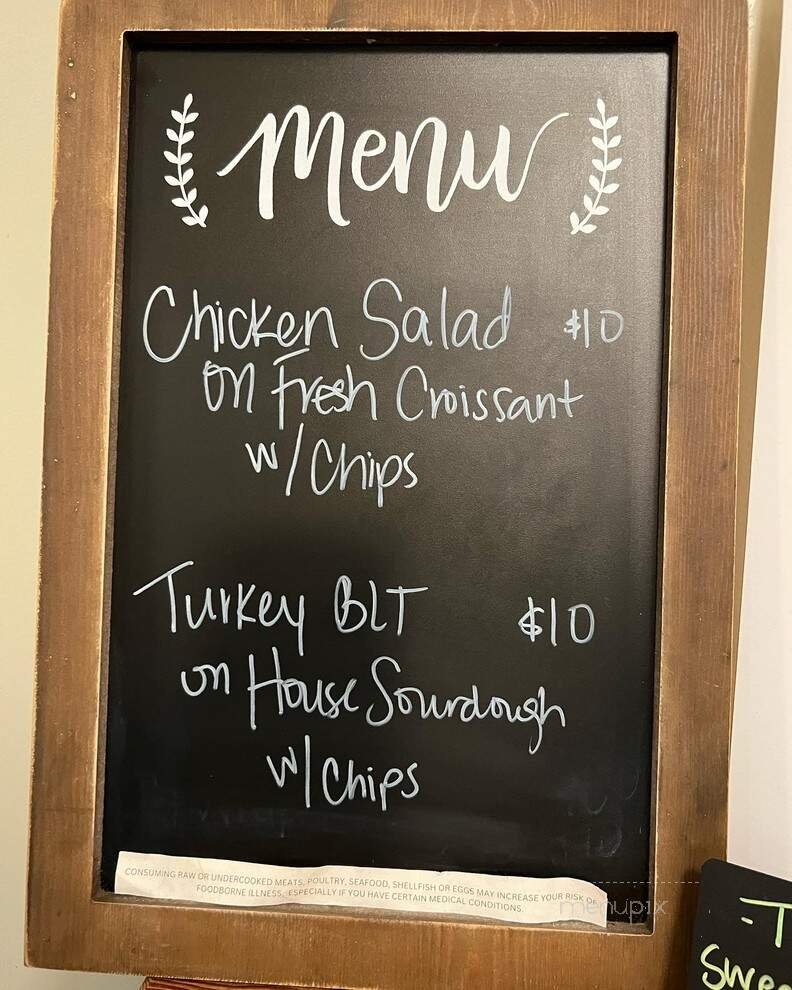 menu
Chicken Salad $10
on Fresh Croissant
w/Chips
Turkey BLT $10
on House Sourdough
w/Chips
CONSUMING RAW OR UNDERCOOKED MEATS, POULTRY, SEAFOOD, SHELLFISH OR EGGS MAY INCREASE YOUR RISK OF
FOODBORNE ILLNESS, ESPECIALLY IF YOU HAVE CERTAIN MEDICAL CONDITIONS.
menupix